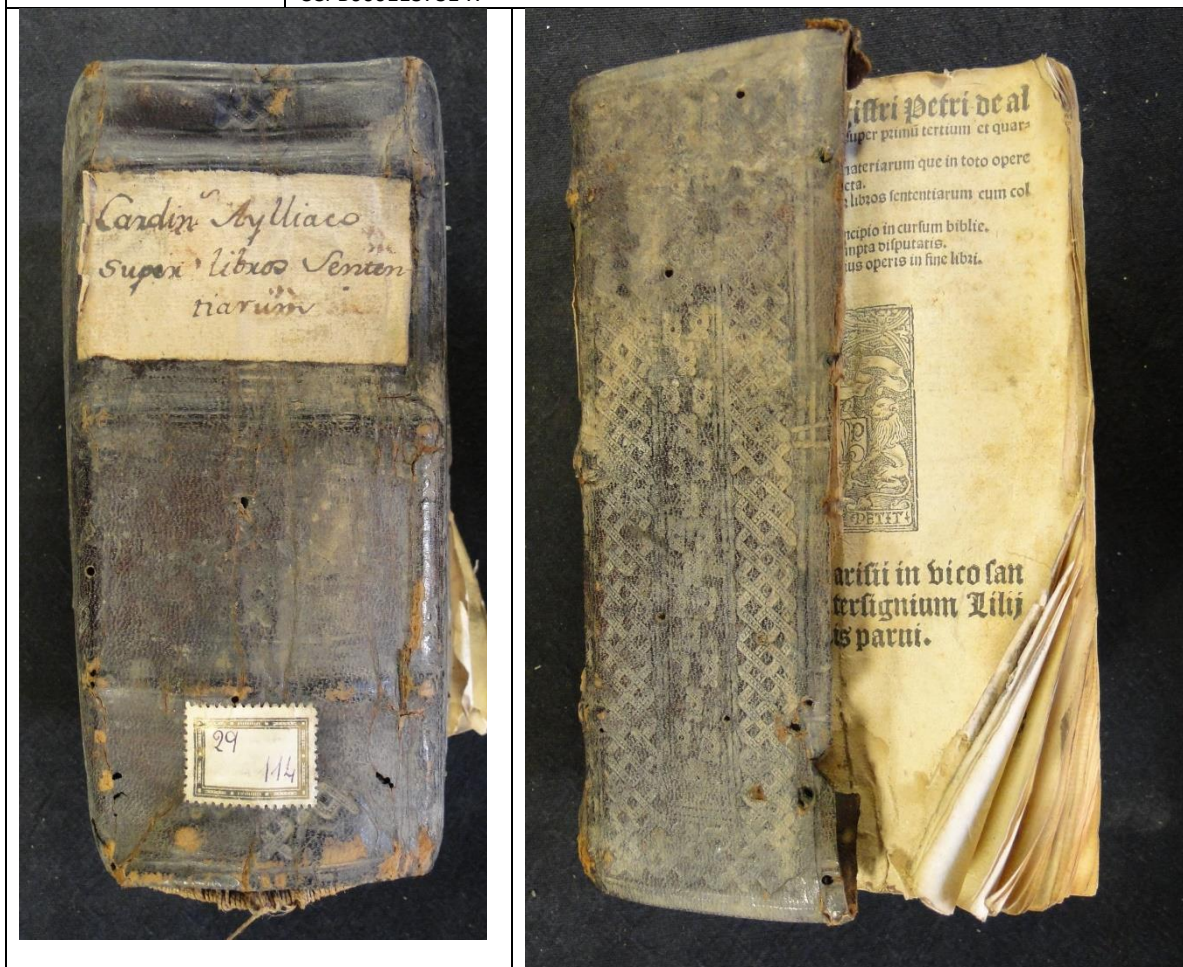 Cardin Aylliaco
super libros Senten
tiarum
29
114
istri Petri de al
super primū tertium et quar-
materiarum que in toto opere
cta.
libros sententiarum cum col
ncipio in cursum biblie.
mpta disputatis.
ius operis in fine libri.
P
PETIT
arisii in vico san
tersignium Lilij
is parui.